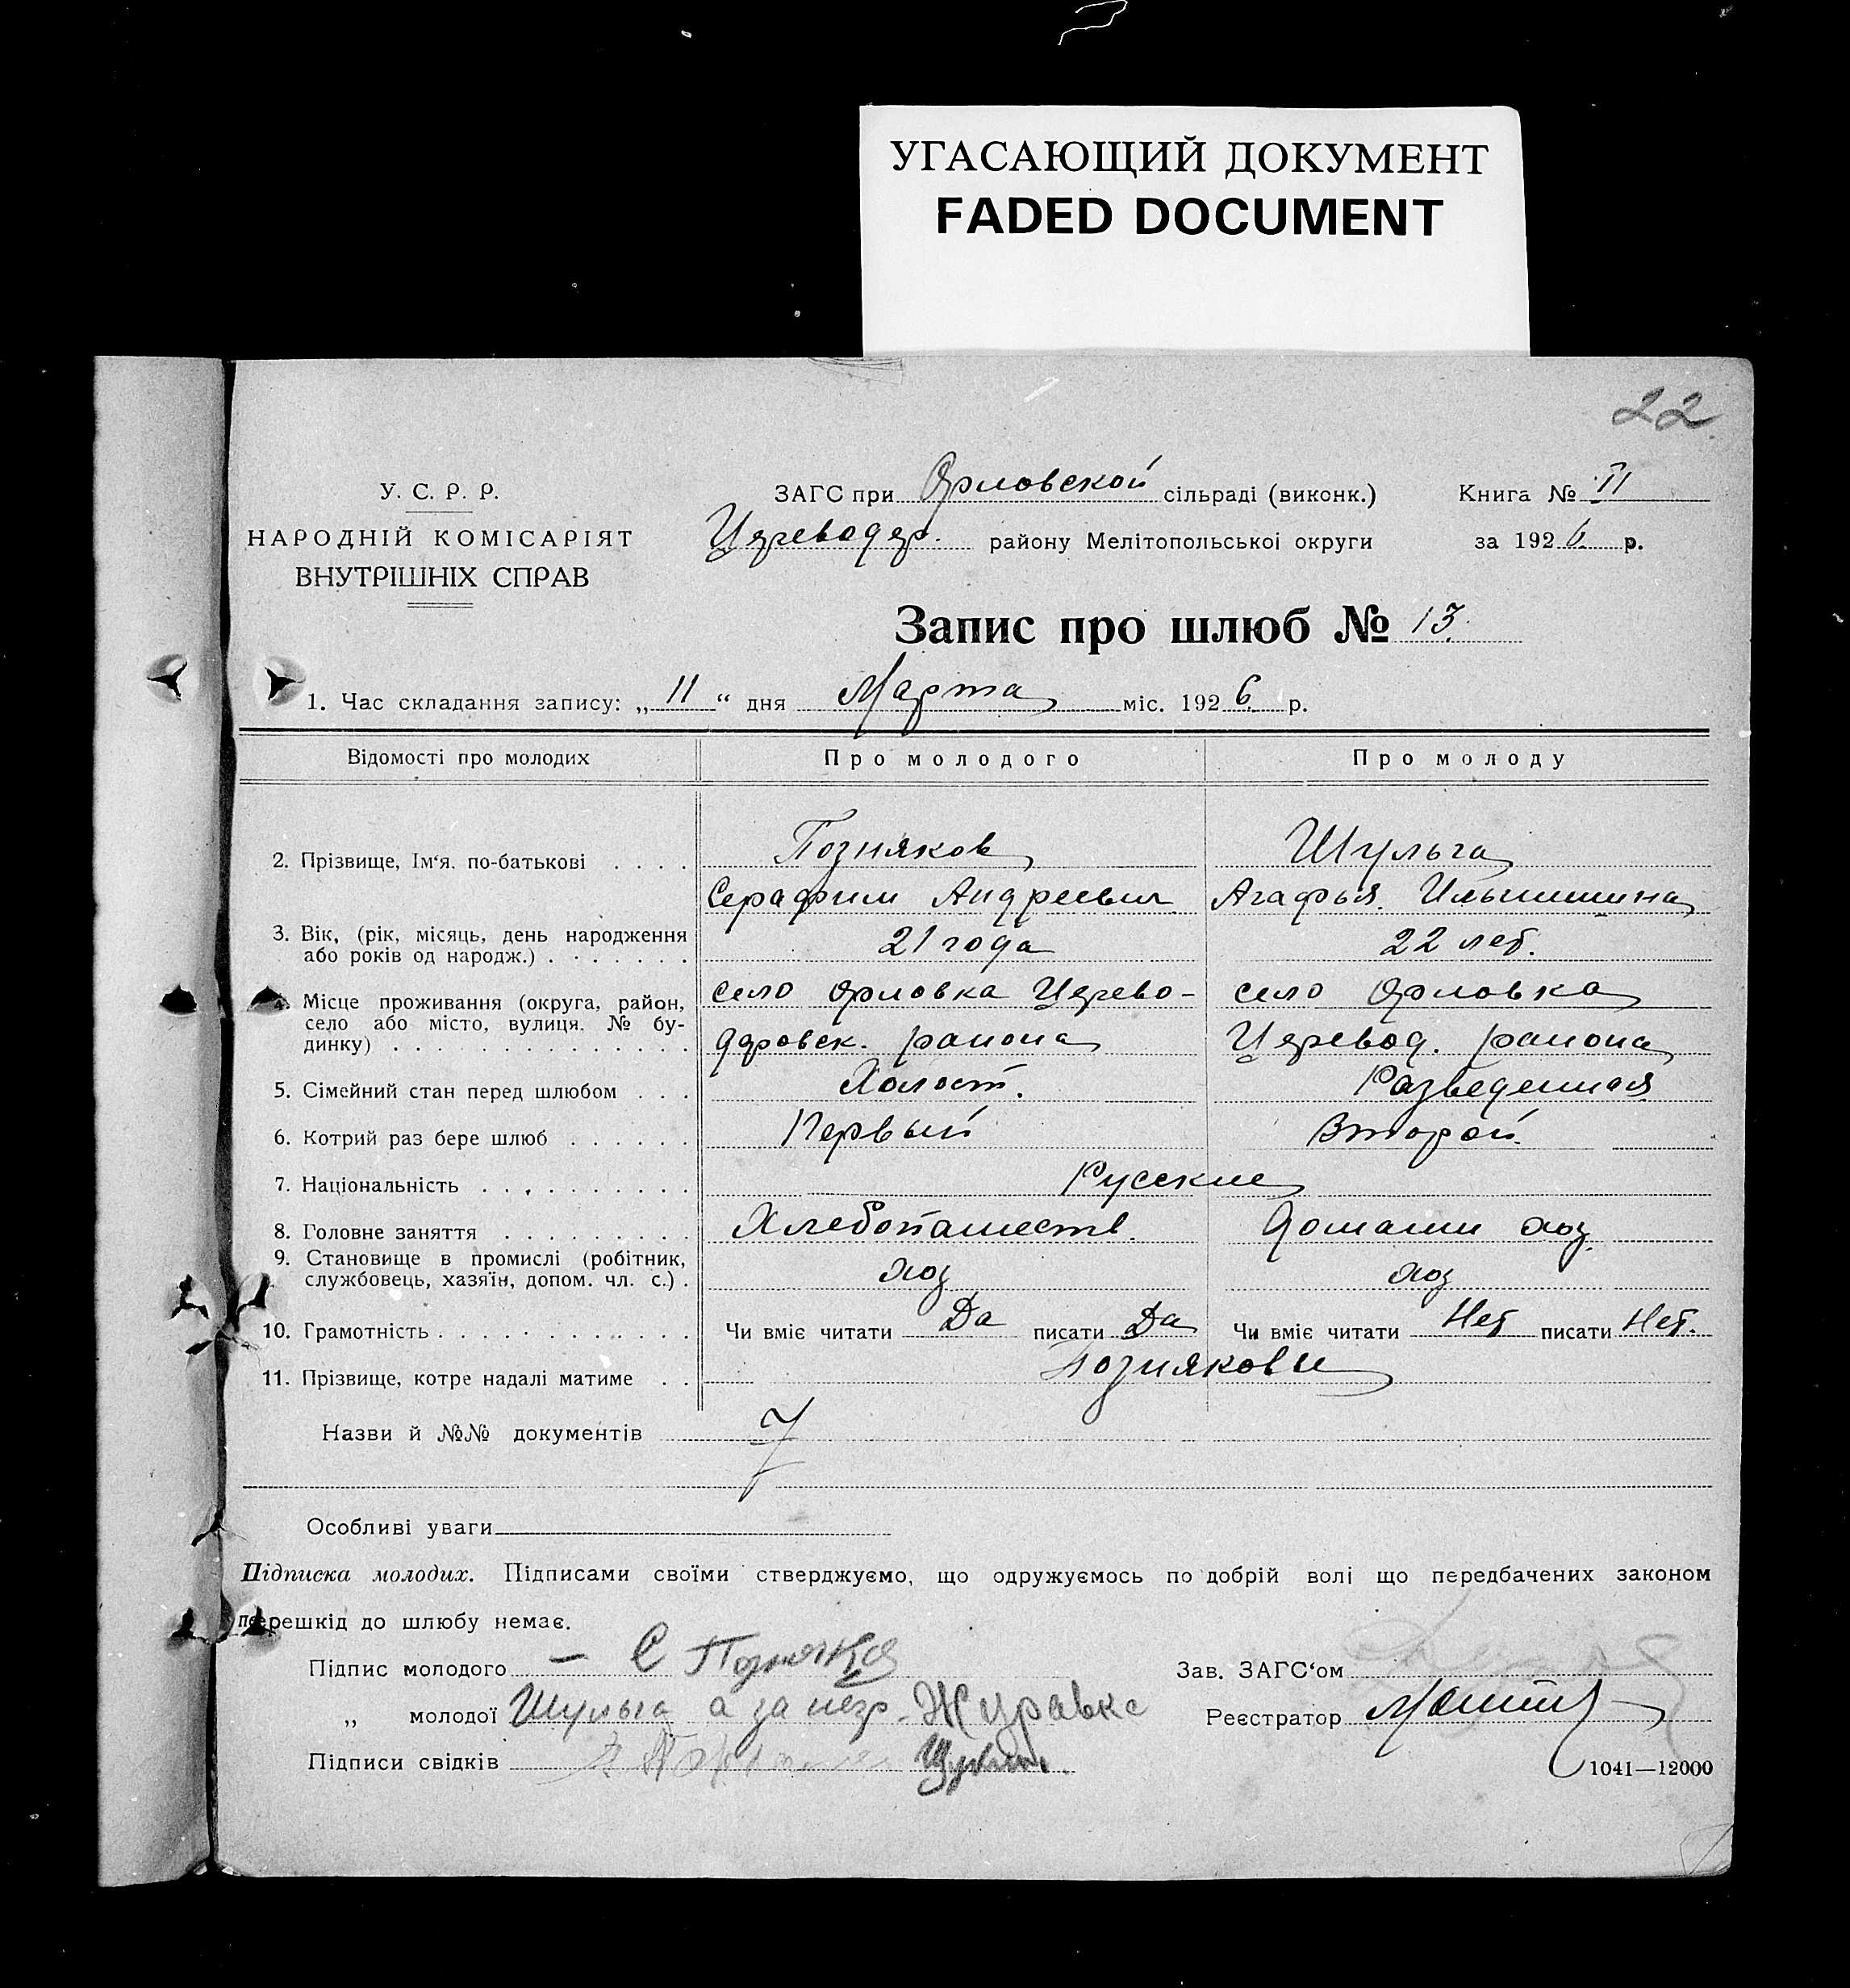 УГАСАЮЩИЙ ДОКУМЕНТ
FADED DOCUMENT
22
У. С. Р. Р.
НАРОДНІЙ КОМІСАРІЯТ
ВНУТРІШНІХ СПРАВ
ЗАГС при Орловской сільраді (виконк.)
району Мелітопольської округи
Книга № II
за 1926 р.
Запис про шлюб № 13.
1. Час складання запису: „ 11 “ дня Марта міс. 1926 р.
Відомості про молодих Про молодого Про молоду
2. Прізвище, Ім‘я. по-батькові . . . . Позняков Шульга
Серафим Андреевич Агафья
3. Вік, (рік, місяць, день народження або років од народж.) . . . . . . 21 года 22 лет.
4. Місце проживання (округа, район, село орловка село орловка
село або місто, вулиця. № бу-
динку) . . . . . . . . . . . . . . района района
5. Сімейний стан перед шлюбом . . . Холост. Разведенная
6. Котрий раз бере шлюб . . . . . . Первый Второй.
7. Національність . . . . . . . . . . Русские
8. Головне заняття . . . . . . . . . Хлебопашеств. домашн хоз.
9. Становище в промислі (робітник,
службовець, хазяїн, допом. чл. с.) . хоз хоз
10. Грамотність . . . . . . . . . . . . Чи вміє читати Да писати Да Чи вміє читати Нет писати Нет.
11. Прізвище, котре надалі матиме . . Позняковы
Назви й №№ документів
Особливі уваги
Підписка молодих. Підписами своїми стверджуємо, що одружуємось по добрій волі що передбачених законом
перешкід до шлюбу немає.
Підпис молодого — С
„ молодої Шульга а за негр.
Підписи свідків
Зав. ЗАГС‘ом
Реєстратор
1041—12000